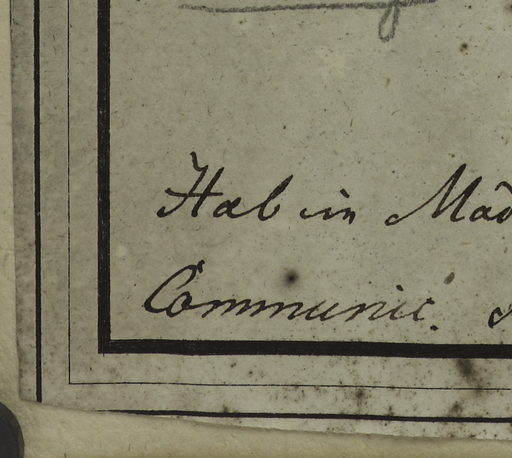 Hab in Mad
Communic.